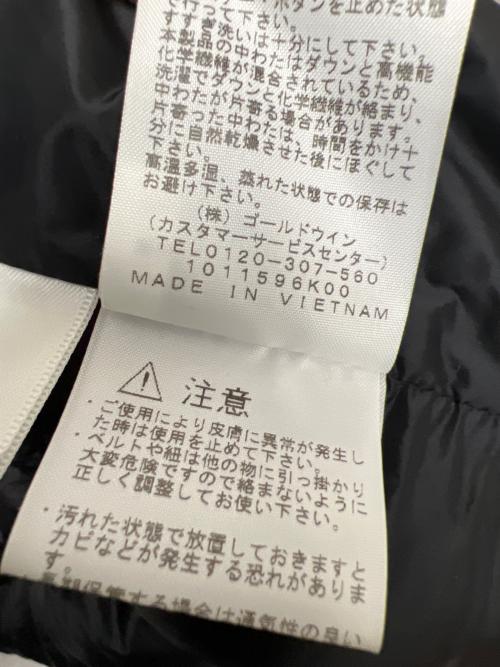 ボタンを止めた状態
で行って下さい。
すすぎ洗いは十分にして下さい。
本製品の中わたはダウンと高機能
化学繊維が混合されているため、
洗濯でダウンと化学繊維が絡まり、
中わたが片寄る場合があります。
片寄った中わたは、時間をかけ十
分に自然乾燥させた後にほぐして
下さい。
高温多湿、蒸れた状態での保存は
お避け下さい。
(株) ゴールドウイン
(カスタマーサービスセンター)
TEL0120-307-560
1011596K00
MADE IN VIETNAM
注意
・ご使用により皮膚に異常が発生し
た時は使用を止めて下さい。
・ベルトや紐は他の物に引っ掛かり
大変危険ですので絡まないように
正しく調整してお使い下さい。
・汚れた状態で放置しておきますと
カビなどが発生する恐れがありま
す。
長期保管する場合は通気性の良い